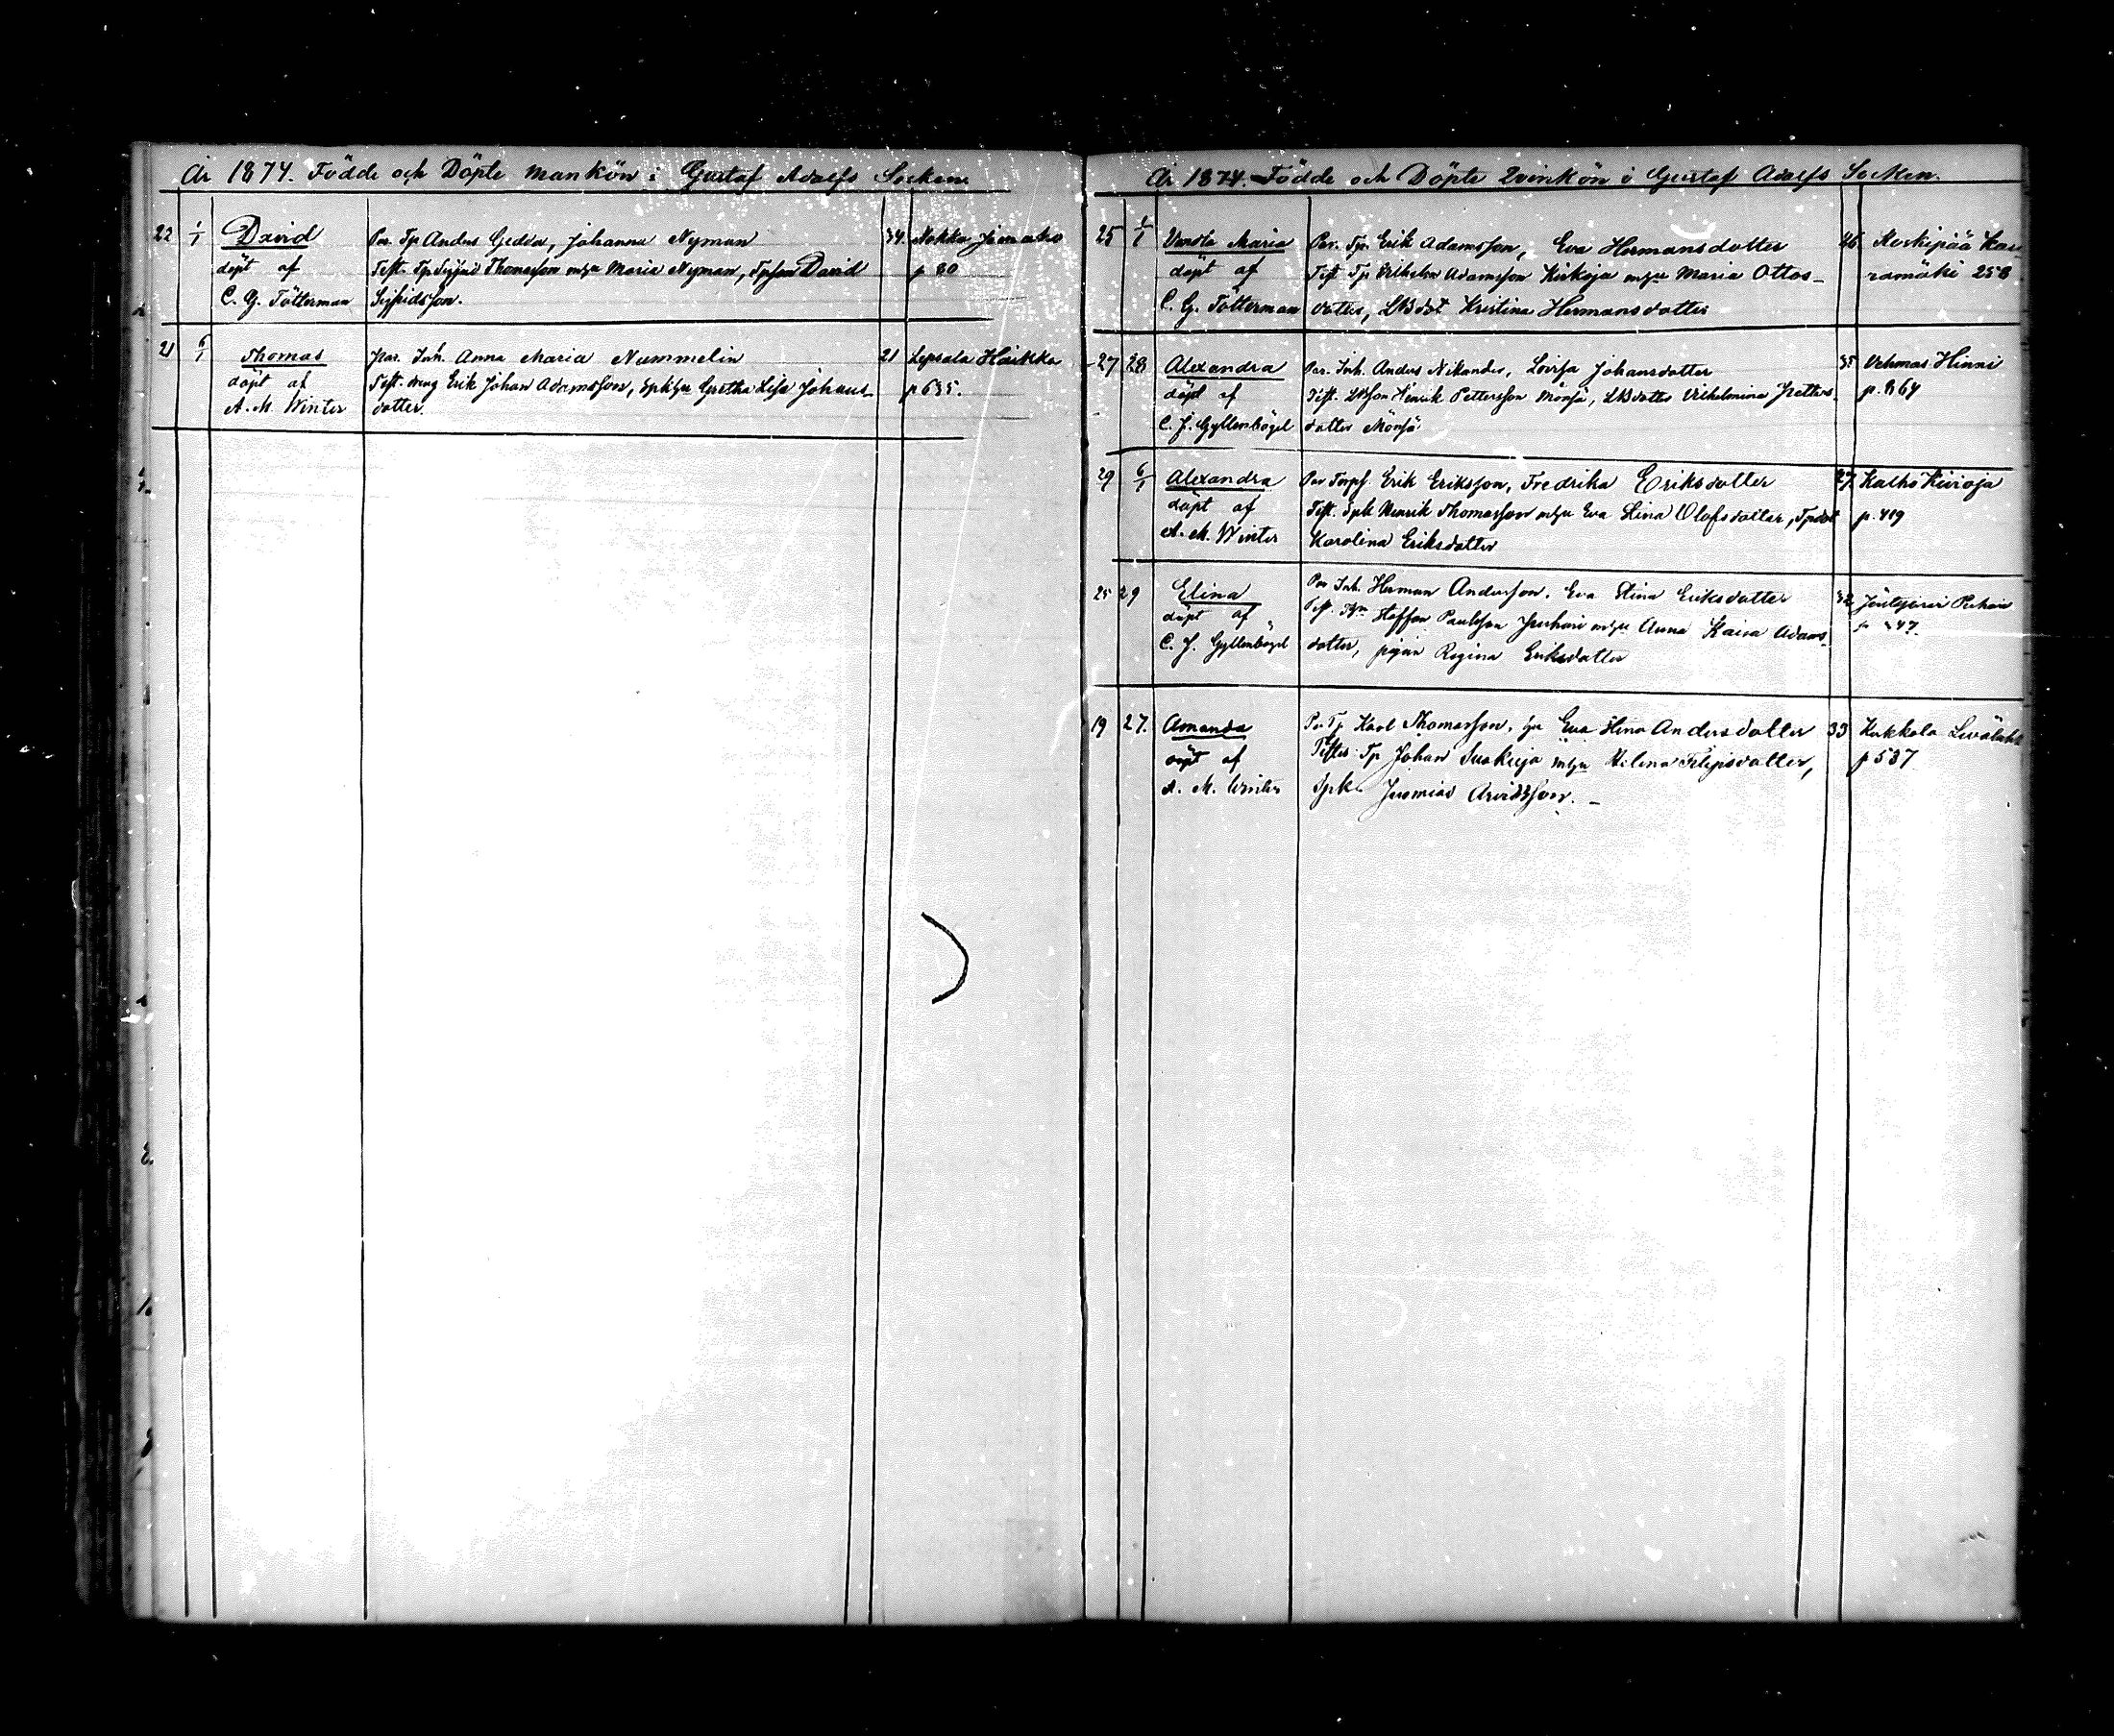 År 1874. Födde och Döpte mankön i Gustaf Adolfs Socken
22 1/1 David Par. Tp. Anders Gedda, Johanna Nyman 34. Nokka
döpt af Test. Tp Sigfrid Thomasson m hu Maria Nyman, Tpson David p 80
C. G. Tötterman Sigfridsson.
21 6/1 Thomas Par. Inh. Anna Maria Nummelin 21 Lepsala Haikka
döpt af Test. dräng Erik Johan Adamsson, Greta Lisa Johans- p 635.
A. M. Winter dotter.
År 1874. Födde och Döpte Qvinkön i Gustaf Adolfs Socken.
25 1/1 Vendla Maria Par. Tp. Erik Adamsson, Eva Hermansdotter 26 Koskipää
döpt af Test Tp Vilhelm Adamsson Kirkoja m hu Maria Ottos- ramäki 258
C. G. Tötterman dotter, LBdot Kristina Hermansdotter
27 28 Alexandra Par. Inh. Anders Nikander, Lovisa Johansdotter 35 Vehmas Hinni
döpt af Test. LBson Henrik Pettersson Mönjä, LBdotter Vilhelmina Petters- p. 864
C. J. Gyllenbögel dotter Mönjä
29 6/1 Alexandra Par Torp. Erik Eriksson, Fredrika Eriksdotter 27. Kalho Kivioja
döpt af Test. Spk Henrik Thomasson m hu Eva Stina Olofsdotter, Tpdot p. 419
A. M. Winter Karolina Eriksdotter
25 29 Elina Par Inh. Herman Andersson, Eva Stina Eriksdotter 32 Jäntejärvi
döpt af Test. Staffan Paulsson m hu Anna Kaisa Adams-
C. J. Gyllenbögel dotter, pigan Regina Eriksdotter
19 27. Amanda Par Tp Karl Thomasson, hu Eva Stina Andersdotter 33 Kukkola
döpt af Testes: Tp Johan Suokuja m hu Helena Filipsdotter, p 537
A. M. Winter Spk Jeremias Arvidsson. –